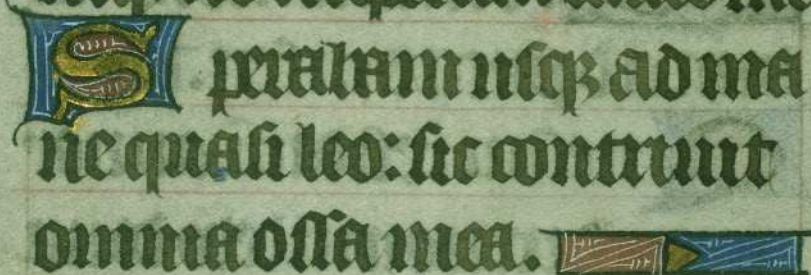 Sperabam usqꝫ ad ma
ne quasi leo: sic contriuit
omnia ossa mea.